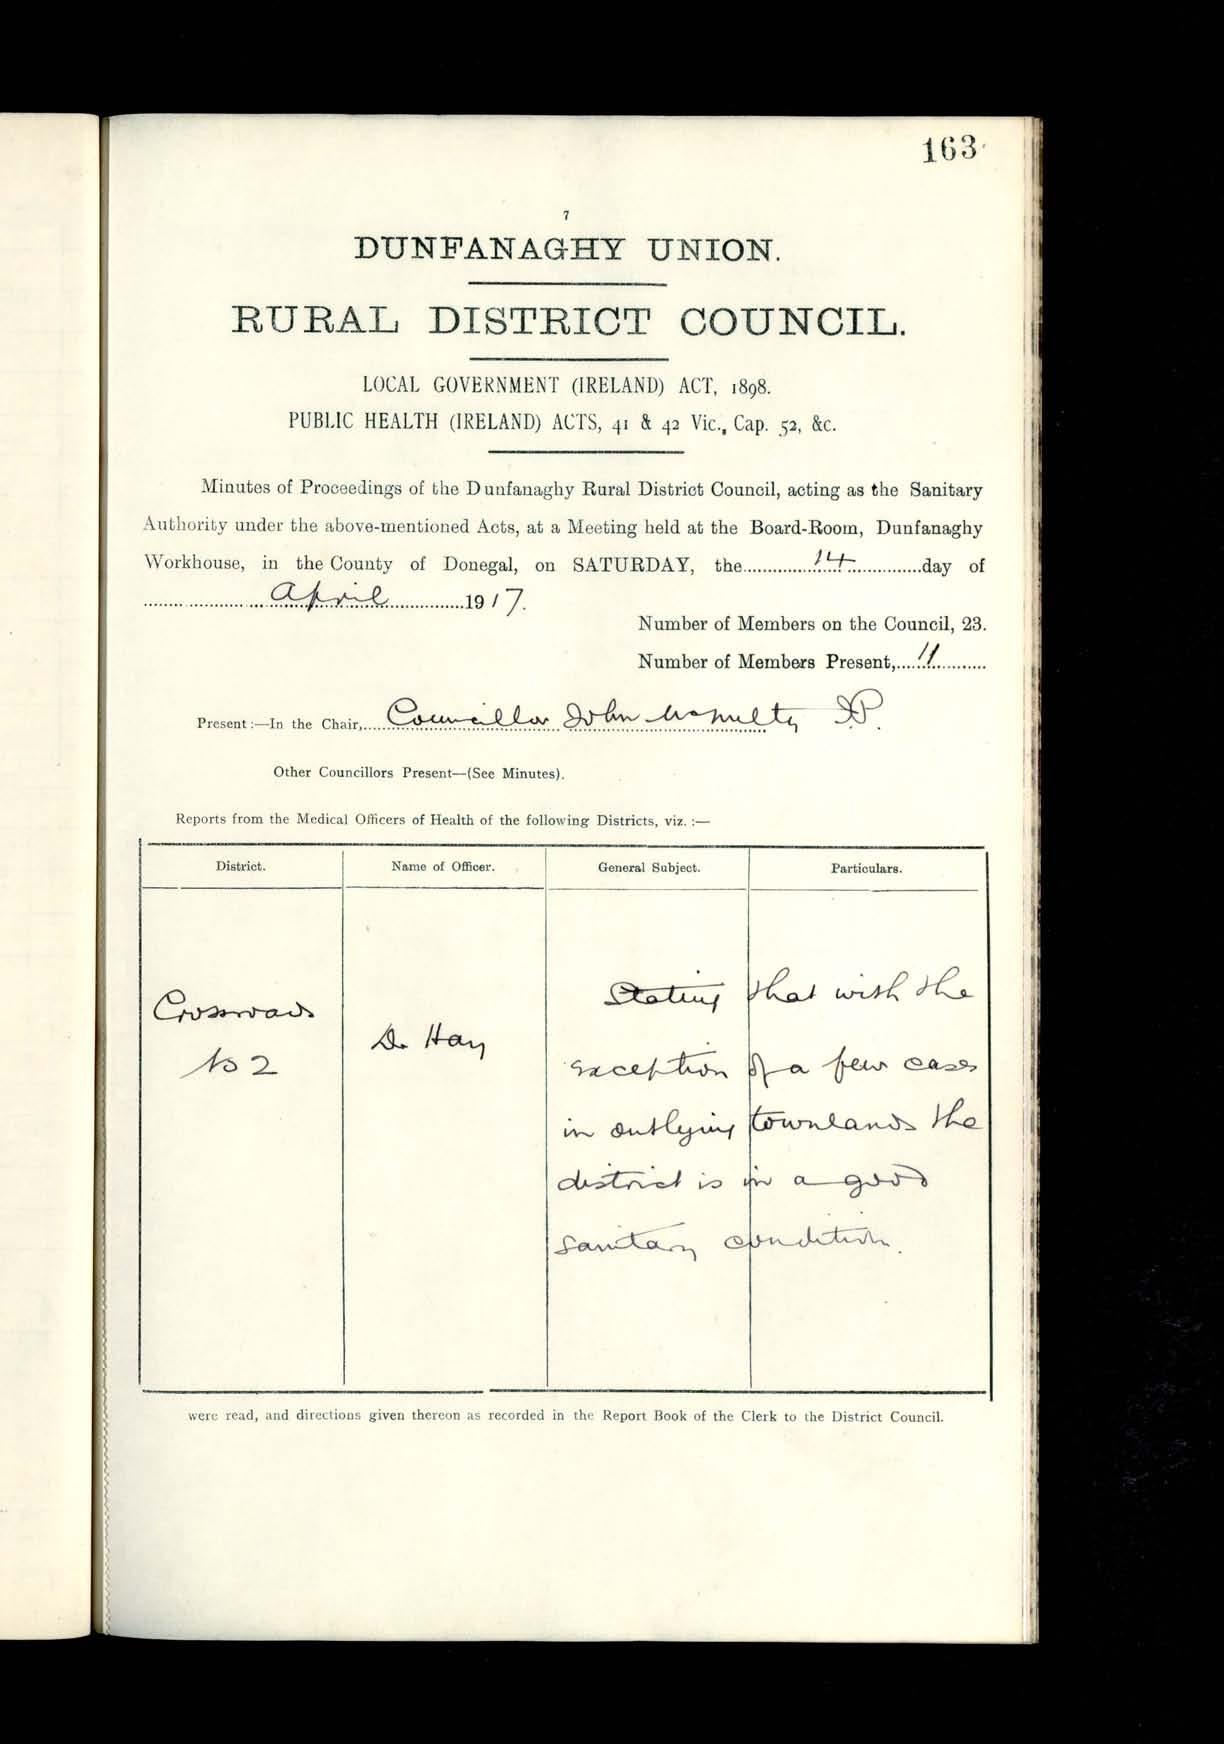 163
7
DUNFANAGHY UNION.
RURAL DISTRICT COUNCIL.
LOCAL GOVERNMENT (IRELAND) ACT, 1898.
PUBLIC HEALTH (IRELAND) ACTS, 41 & 42 Vic., Cap. 52, &c.
Minutes of Proceedings of the Dunfanaghy Rural District Council, acting as the Sanitary
Authority under the above-mentioned Acts, at a Meeting held at the Board-Room, Dunfanaghy
Workhouse, in the County of Donegal, on SATURDAY, the 14 day of
April 1917.
Number of Members on the Council, 23.
Number of Members Present, 11
Present:—In the Chair, Councillor John McNulty J.P.
Other Councillors Present—(See Minutes).
Reports from the Medical Officers of Health of the following Districts, viz. :—
District. Name of Officer. General Subject. Particulars.
Crossroads
No 2
Dr Hay
Stating that with the
exception of a few cases
in outlying townlands the
district is in a good
sanitary condition.
were read, and directions given thereon as recorded in the Report Book of the Clerk to the District Council.